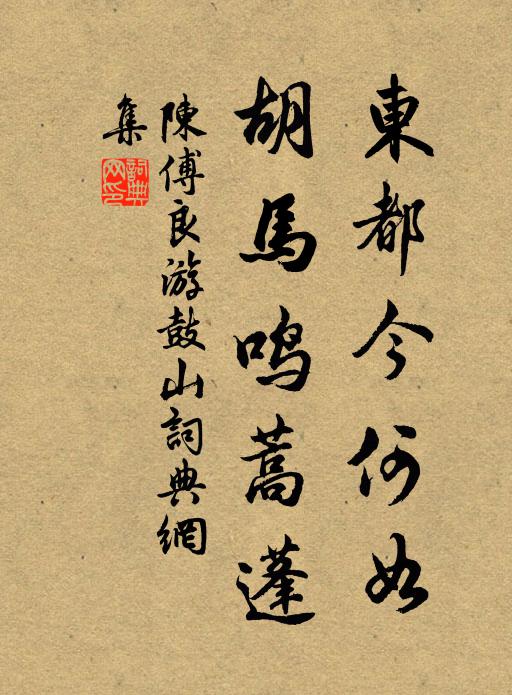 東都今何如
胡馬鳴蒿蓬
陳傅良游鼓山詞典網
集
詞典網印